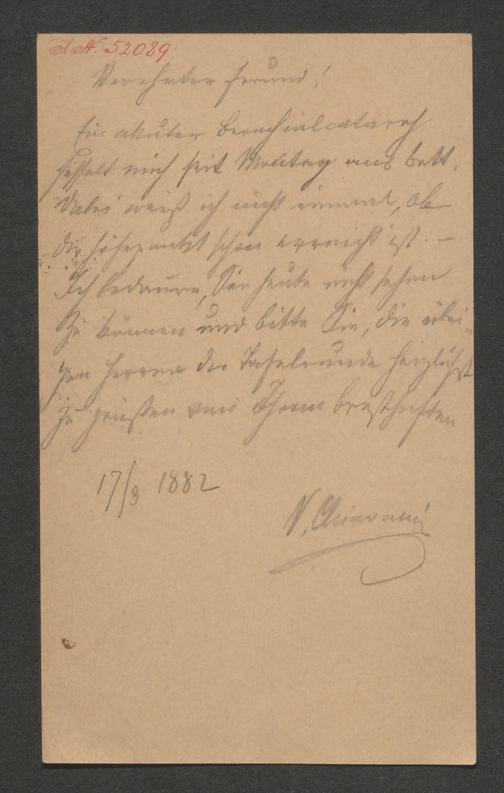 I. N. 52089
Verehrter Freund!
Ein akuter Bronchialcatarrh
fesselt mich seit Montag ans Bett.
Dabei weiß ich nicht einmal, ob
der Höhepunkt schon erreicht ist. –
Ich bedaure, Sie heute nicht sehen
zu können und bitte Sie, die übri-
gen Herren der Tafelrunde herzlichst
zu grüßen von Ihrem bresthaften
17/3 1882
V. Chiavacci